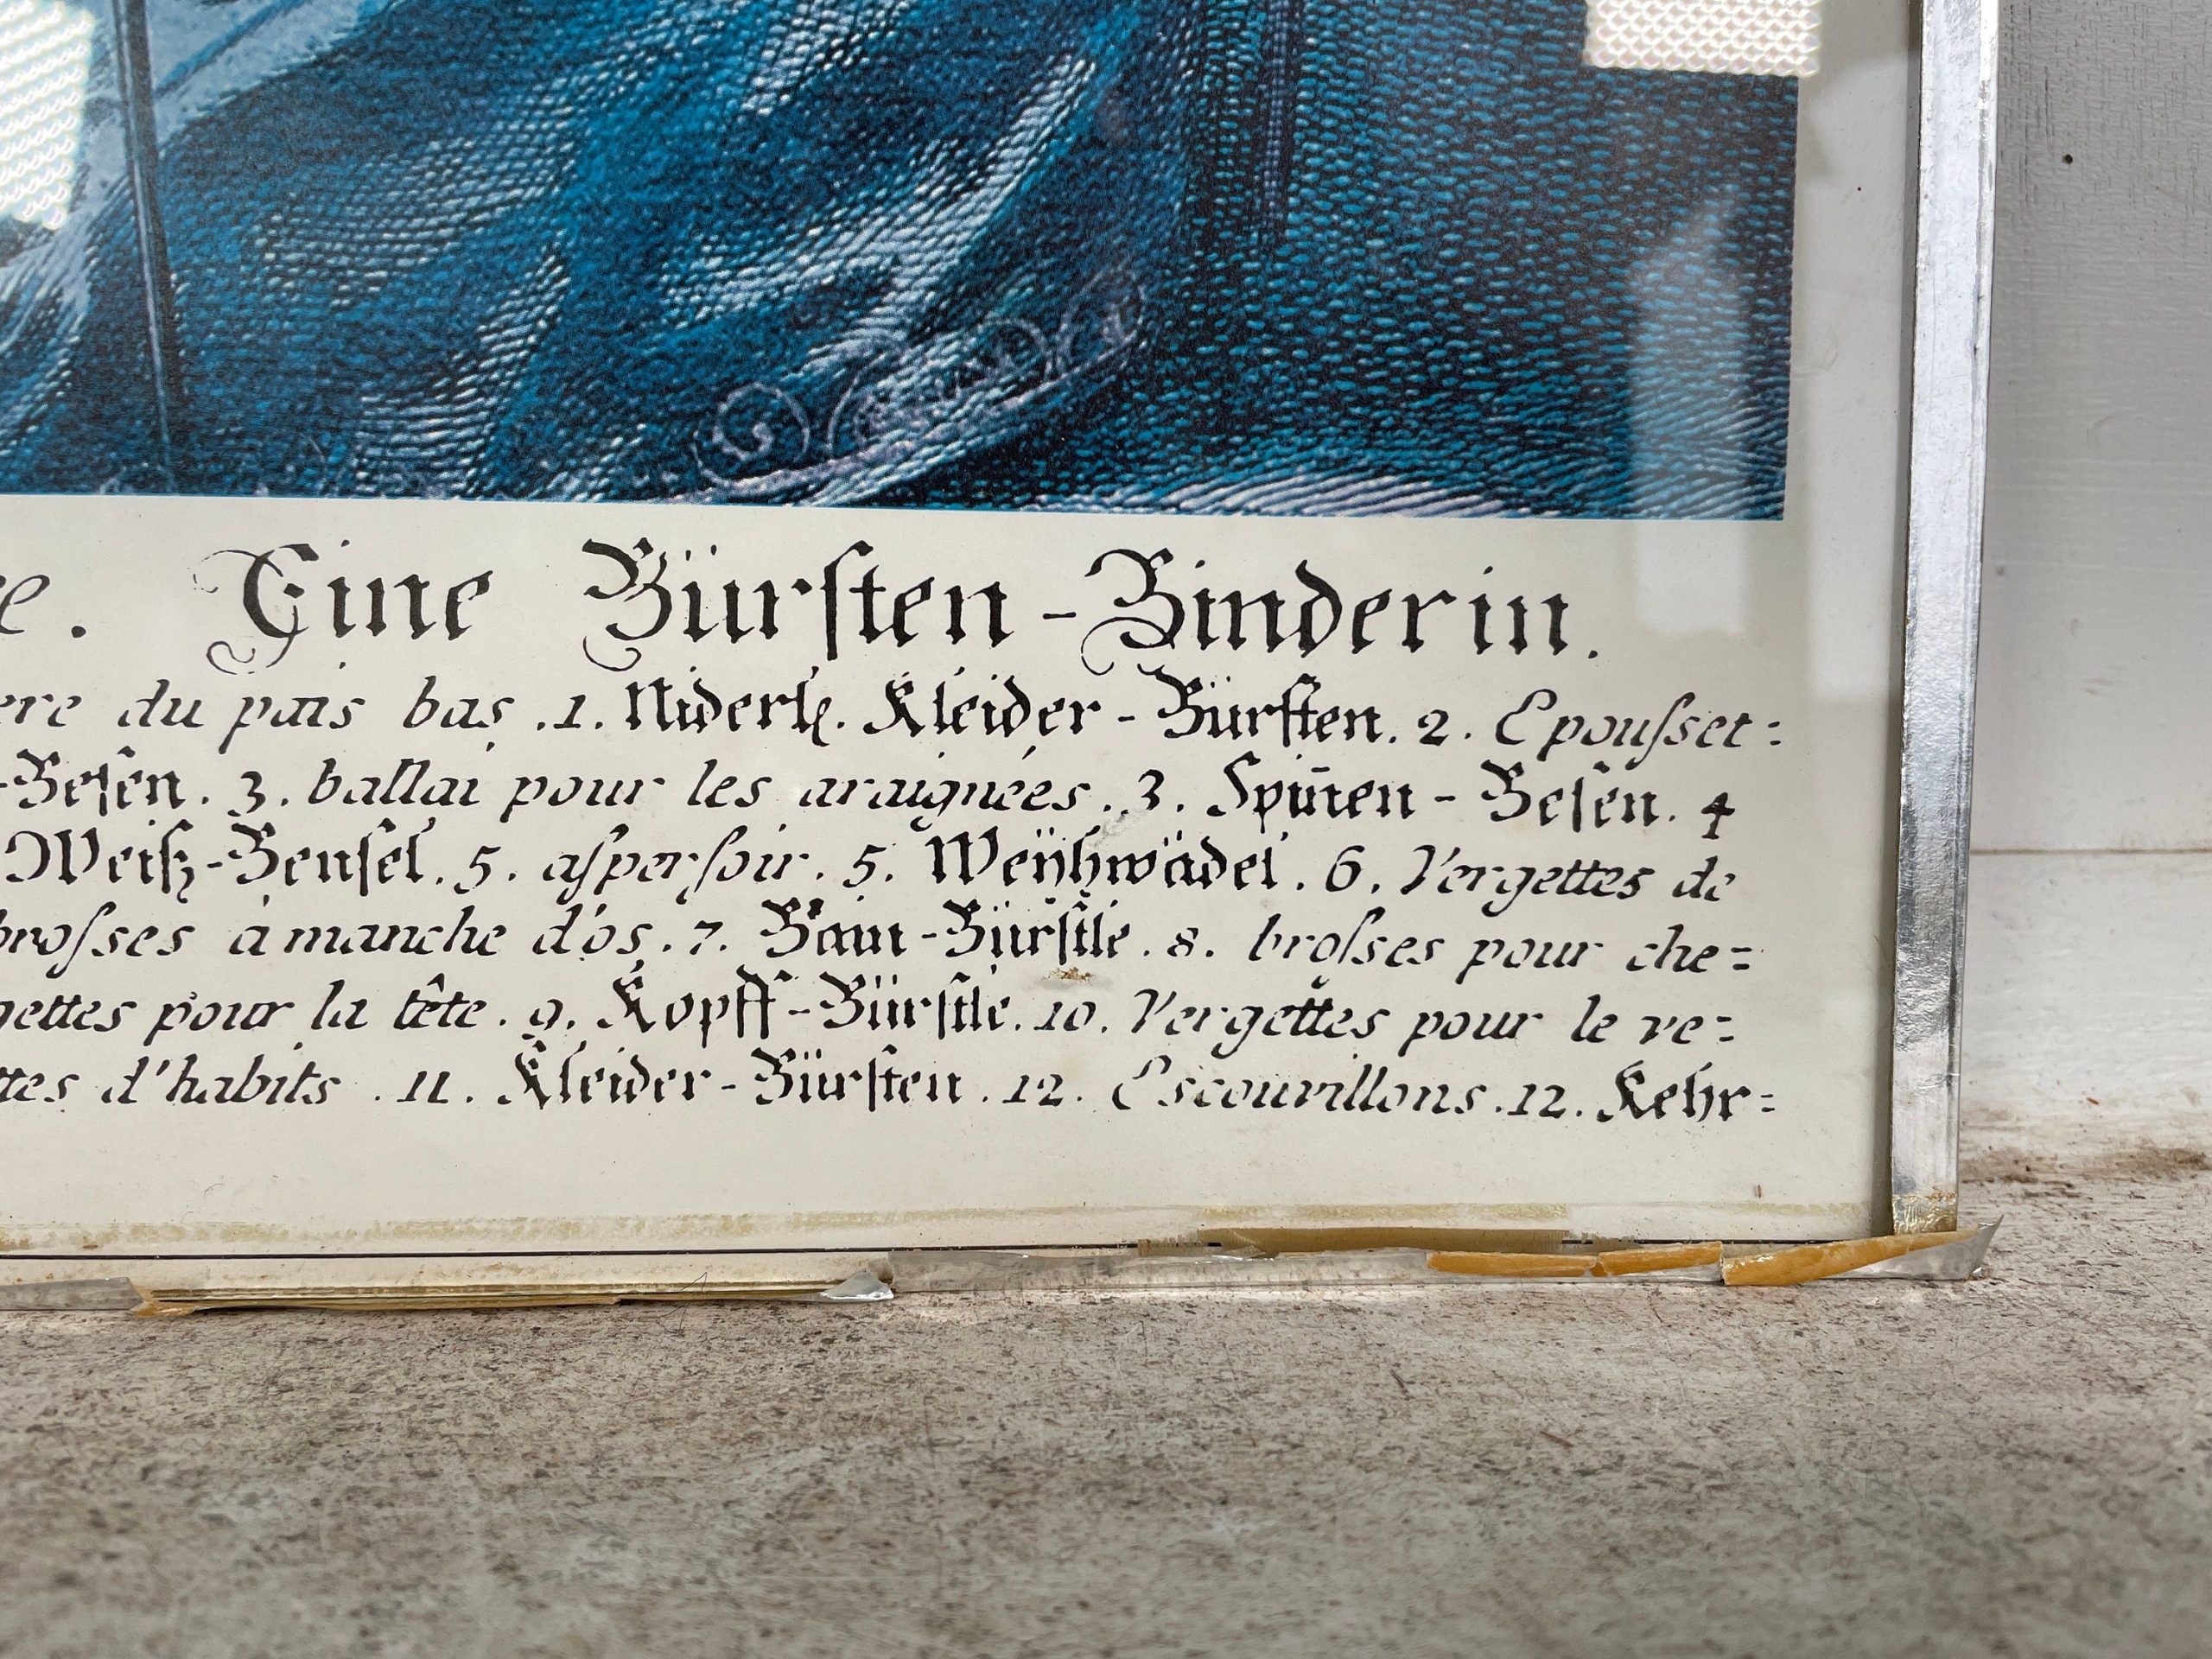 e. Eine Bürſten-Binderin.
ere du païs bas .1. Niderl. Kleider-Bürſten. 2. Epouſset:
-Beſen. 3. ballai pour les araignées. 3. Spin̄en-Beſen. 4
Weiß-Benſel. 5. aſperſoir. 5. Weÿhwädel. 6. Vergettes de
broſses à manche d'os. 7. Bain-Bürſtle. 8. broſses pour che=
gettes pour la tête. 9. Kopff-Bürſtle. 10. Vergettes pour le re=
ttes d'habits. 11. Kleider-Bürſten. 12. Escouvillons. 12. Kehr=